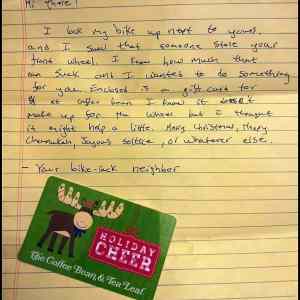 Hi there!
I lock my bike up next to yours,
and I saw that someone stole your
front wheel. I know how much that
can suck and I wanted to do something
for you. Enclosed is a gift card for
at coffee bean I know it doesn't
make up for the wheel but I thought
it might help a little. Merry Christmas, Happy
Chanukah, Joyous Solstice, or whatever else.
- Your bike-rack neighbor
HOLIDAY
CHEER
The Coffee Bean & Tea Leaf